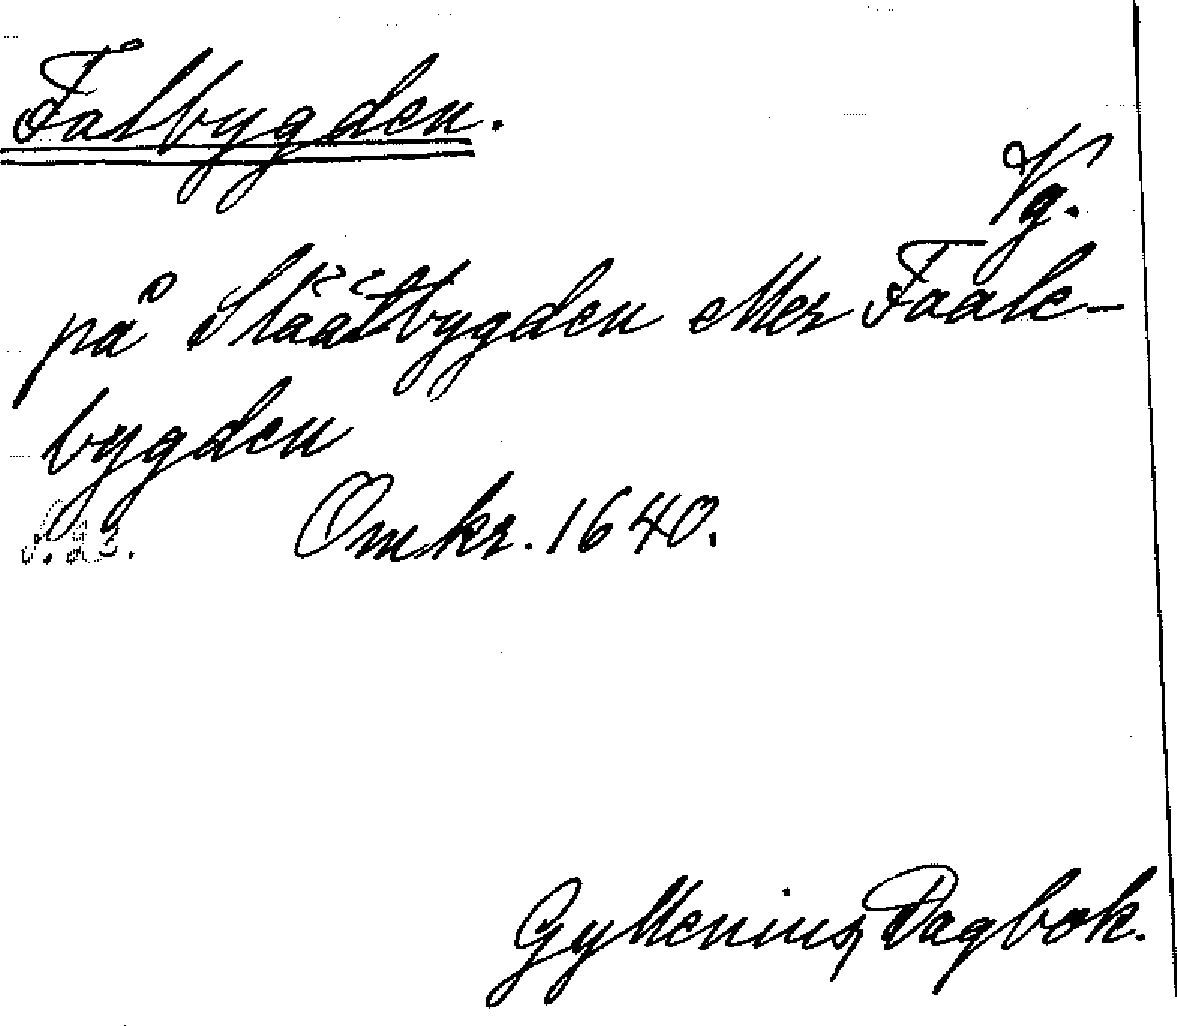 Falbygden.
Vg.
på Släätbygden eller Faale-
bygden
Omkr. 1640.
Gyllenius, Dagbok.